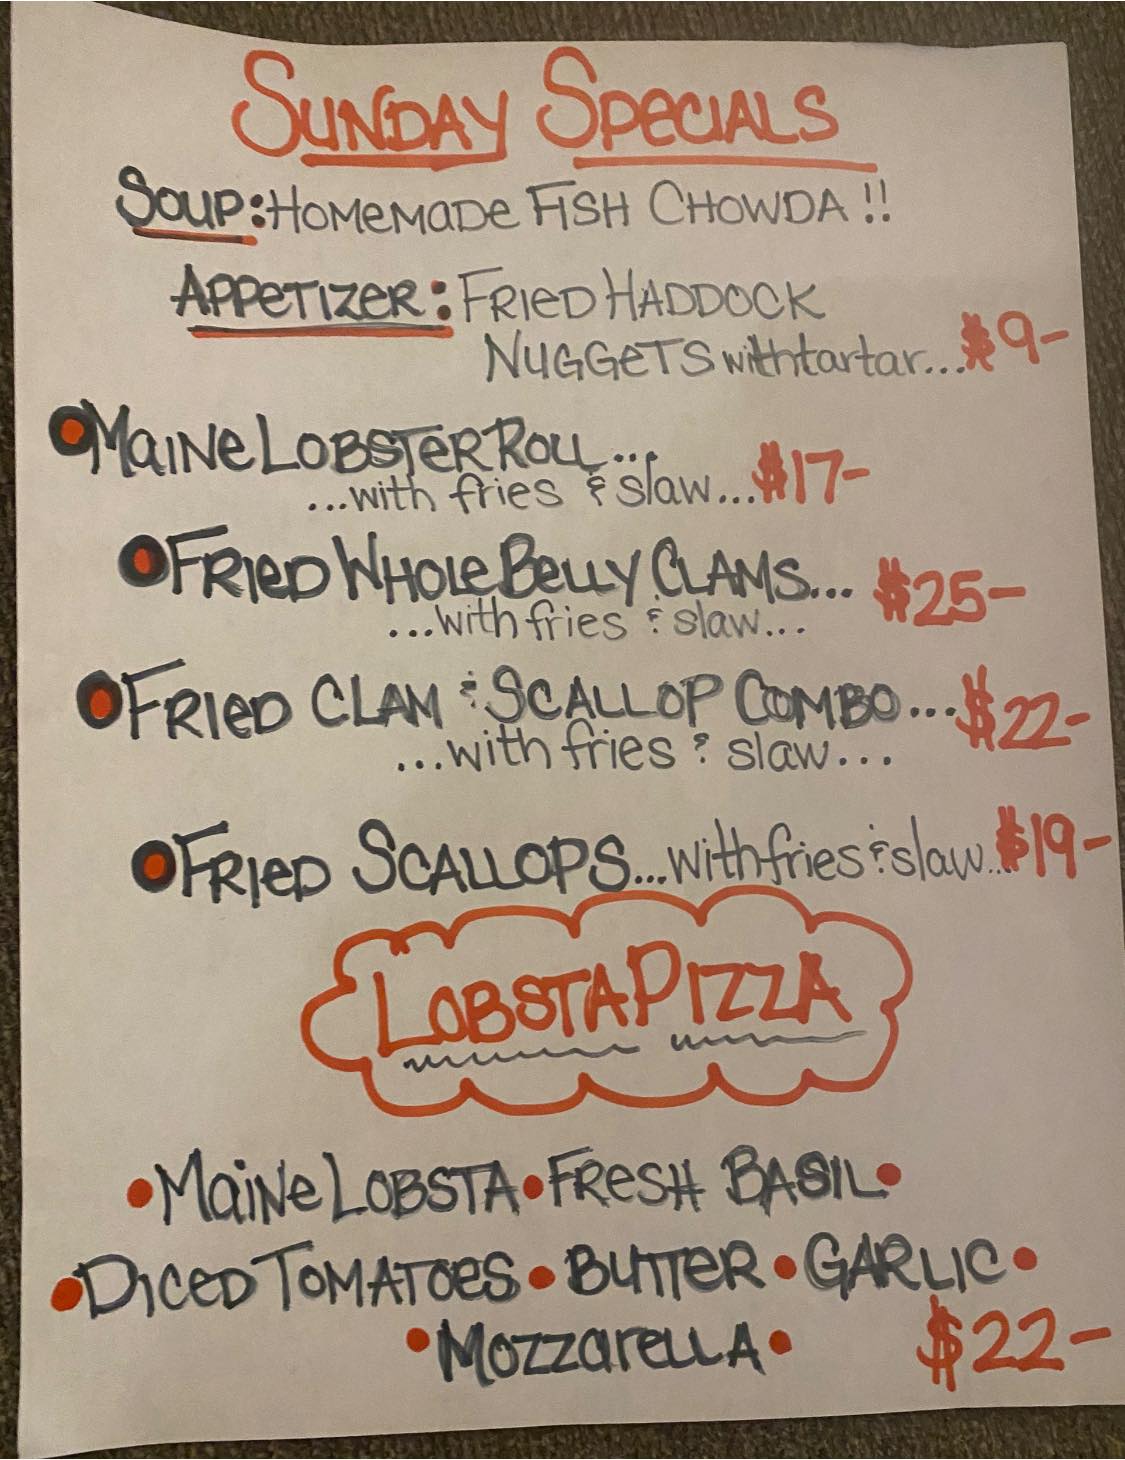 SUNDAY SPECIALS
SOUP: HOMEMADE FISH CHOWDA !!
APPETIZER: FRIED HADDOCK
NUGGETS with tartar... $9-
MAINE LOBSTER ROLL...
...with fries & slaw... $17-
FRIED WHOLE BELLY CLAMS... $25-
...with fries & slaw...
FRIED CLAM & SCALLOP COMBO... $22-
...with fries & slaw...
FRIED SCALLOPS... with fries & slaw... $19-
LOBSTA PIZZA
• MAINE LOBSTA • FRESH BASIL •
• DICED TOMATOES • BUTTER • GARLIC •
• MOZZARELLA • $22-